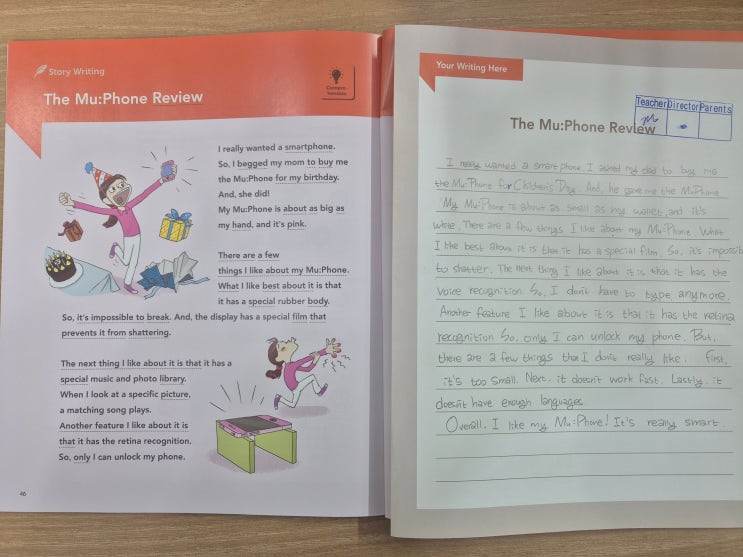 Story Writing
The Mu:Phone Review
Compre-
hension
I really wanted a smartphone.
So, I begged my mom to buy me
the Mu:Phone for my birthday.
And, she did!
My Mu:Phone is about as big as
my hand, and it's pink.
There are a few
things I like about my Mu:Phone.
What I like best about it is that
it has a special rubber body.
So, it's impossible to break. And, the display has a special film that
prevents it from shattering.
The next thing I like about it is that it has a
special music and photo library.
When I look at a specific picture,
a matching song plays.
Another feature I like about it is
that it has the retina recognition.
So, only I can unlock my phone.
46
Your Writing Here
Teacher Director Parents
The Mu:Phone Review
I really wanted a smartphone. I asked my dad to buy me
the Mu:Phone for Children's Day. And, he gave me the MuPhone.
My Mu:Phone is about as small as my wallet, and it's
white. There are a few things I like about my Mu:Phone. What
I like best about it is that it has a special film. So, it's impossib
to shatter. The next thing I like about it is that it has the
voice recognition. So, I don't have to type anymore.
Another feature I like about it is that it has the retina
recognition. So, only I can unlock my phone. But,
there are a few things that I don't really like. First,
it's too small. Next, it doesn't work fast. Lastly, it
doesn't have enough languages.
Overall, I like my Mu:Phone! It's really smart.